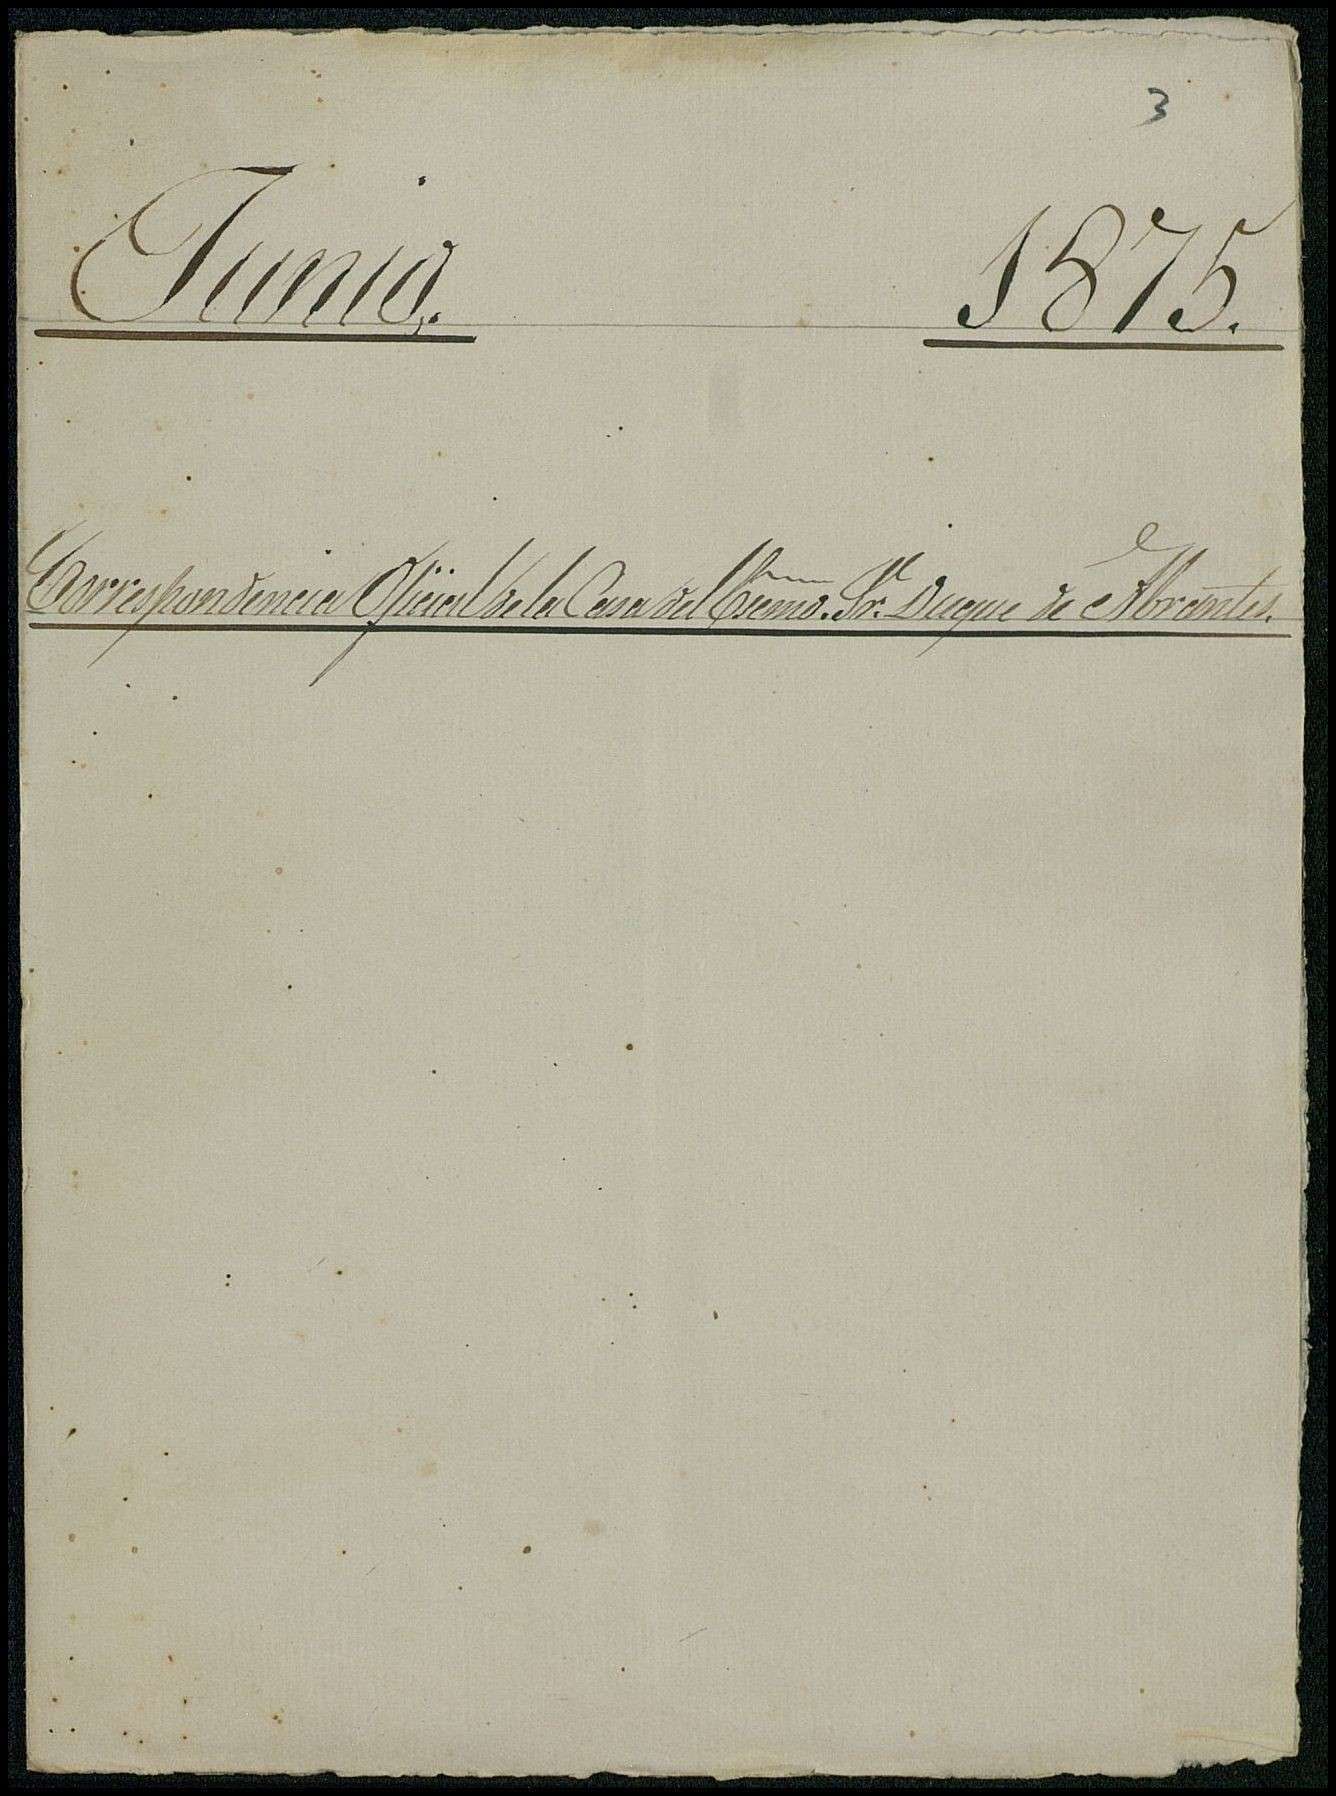 3
Junio. 1875.
Correspondencia Oficial de la Casa del Escmo. Sr. Duque de Abrantes.